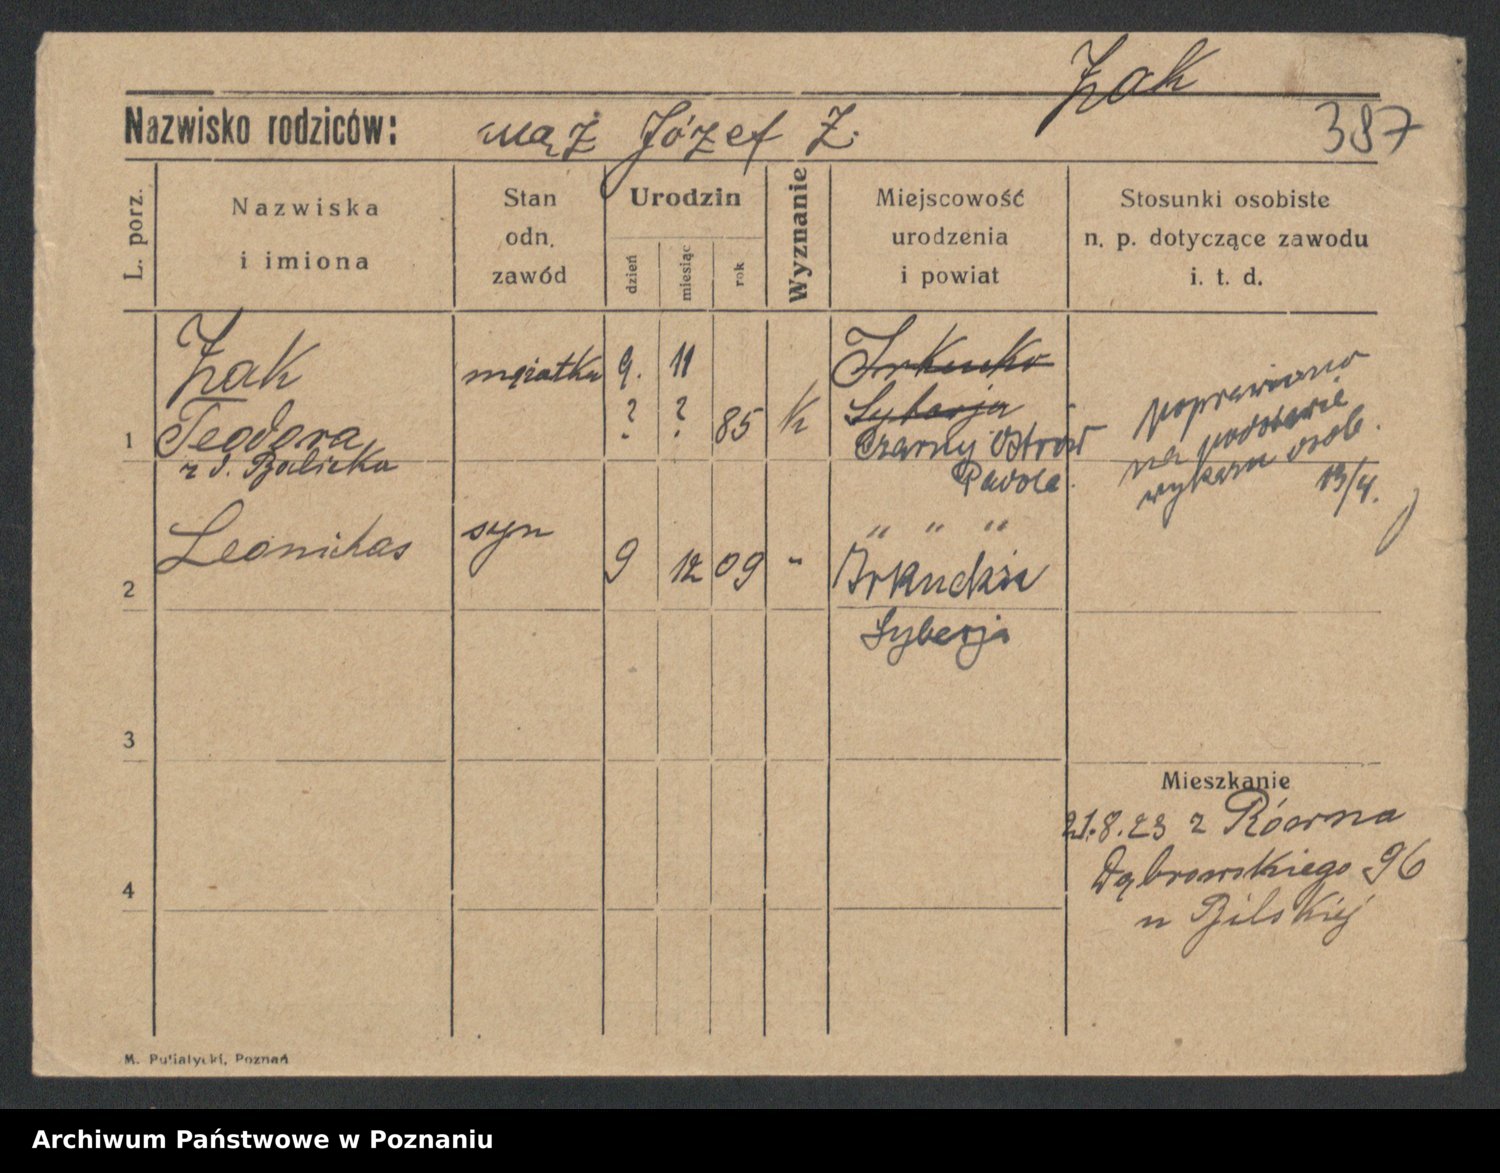 Żak
Nazwisko rodziców: mąż Józef Ż.
387
L. porz.
Nazwiska
i imiona
Stan
odn.
zawód
Urodzin
dzień
miesiąc
rok
Wyznanie
Miejscowość
urodzenia
i powiat
Stosunki osobiste
n. p. dotyczące zawodu
i. t. d.
Żak
mężatka
9. 11
Syberja
1
Teodora
? ? 85
k
Czarny Ostrów
z d. Balicka
poprawiono
na podstawie
wykazu osob.
13/4.
2
Leonidas
syn
9 12 09 "
" " "
Syberja
3
4
Mieszkanie
21.8.23 z Równa
Dąbrowskiego 96
u Bilskiej
M. Putiatycki, Poznań
Archiwum Państwowe w Poznaniu